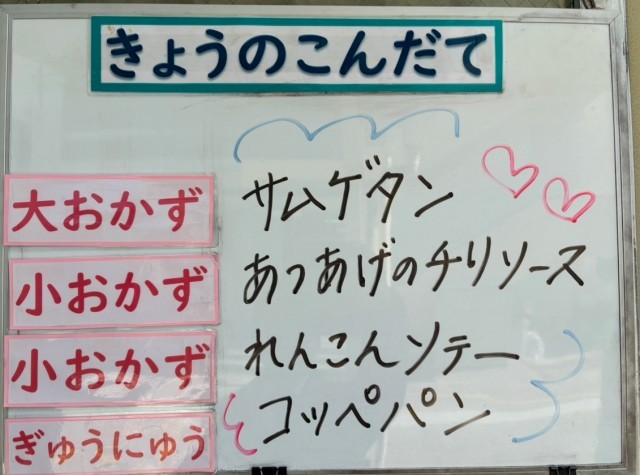 きょうのこんだて
大おかず サムゲタン
小おかず あつあげのチリソース
小おかず れんこんソテー
ぎゅうにゅう コッペパン